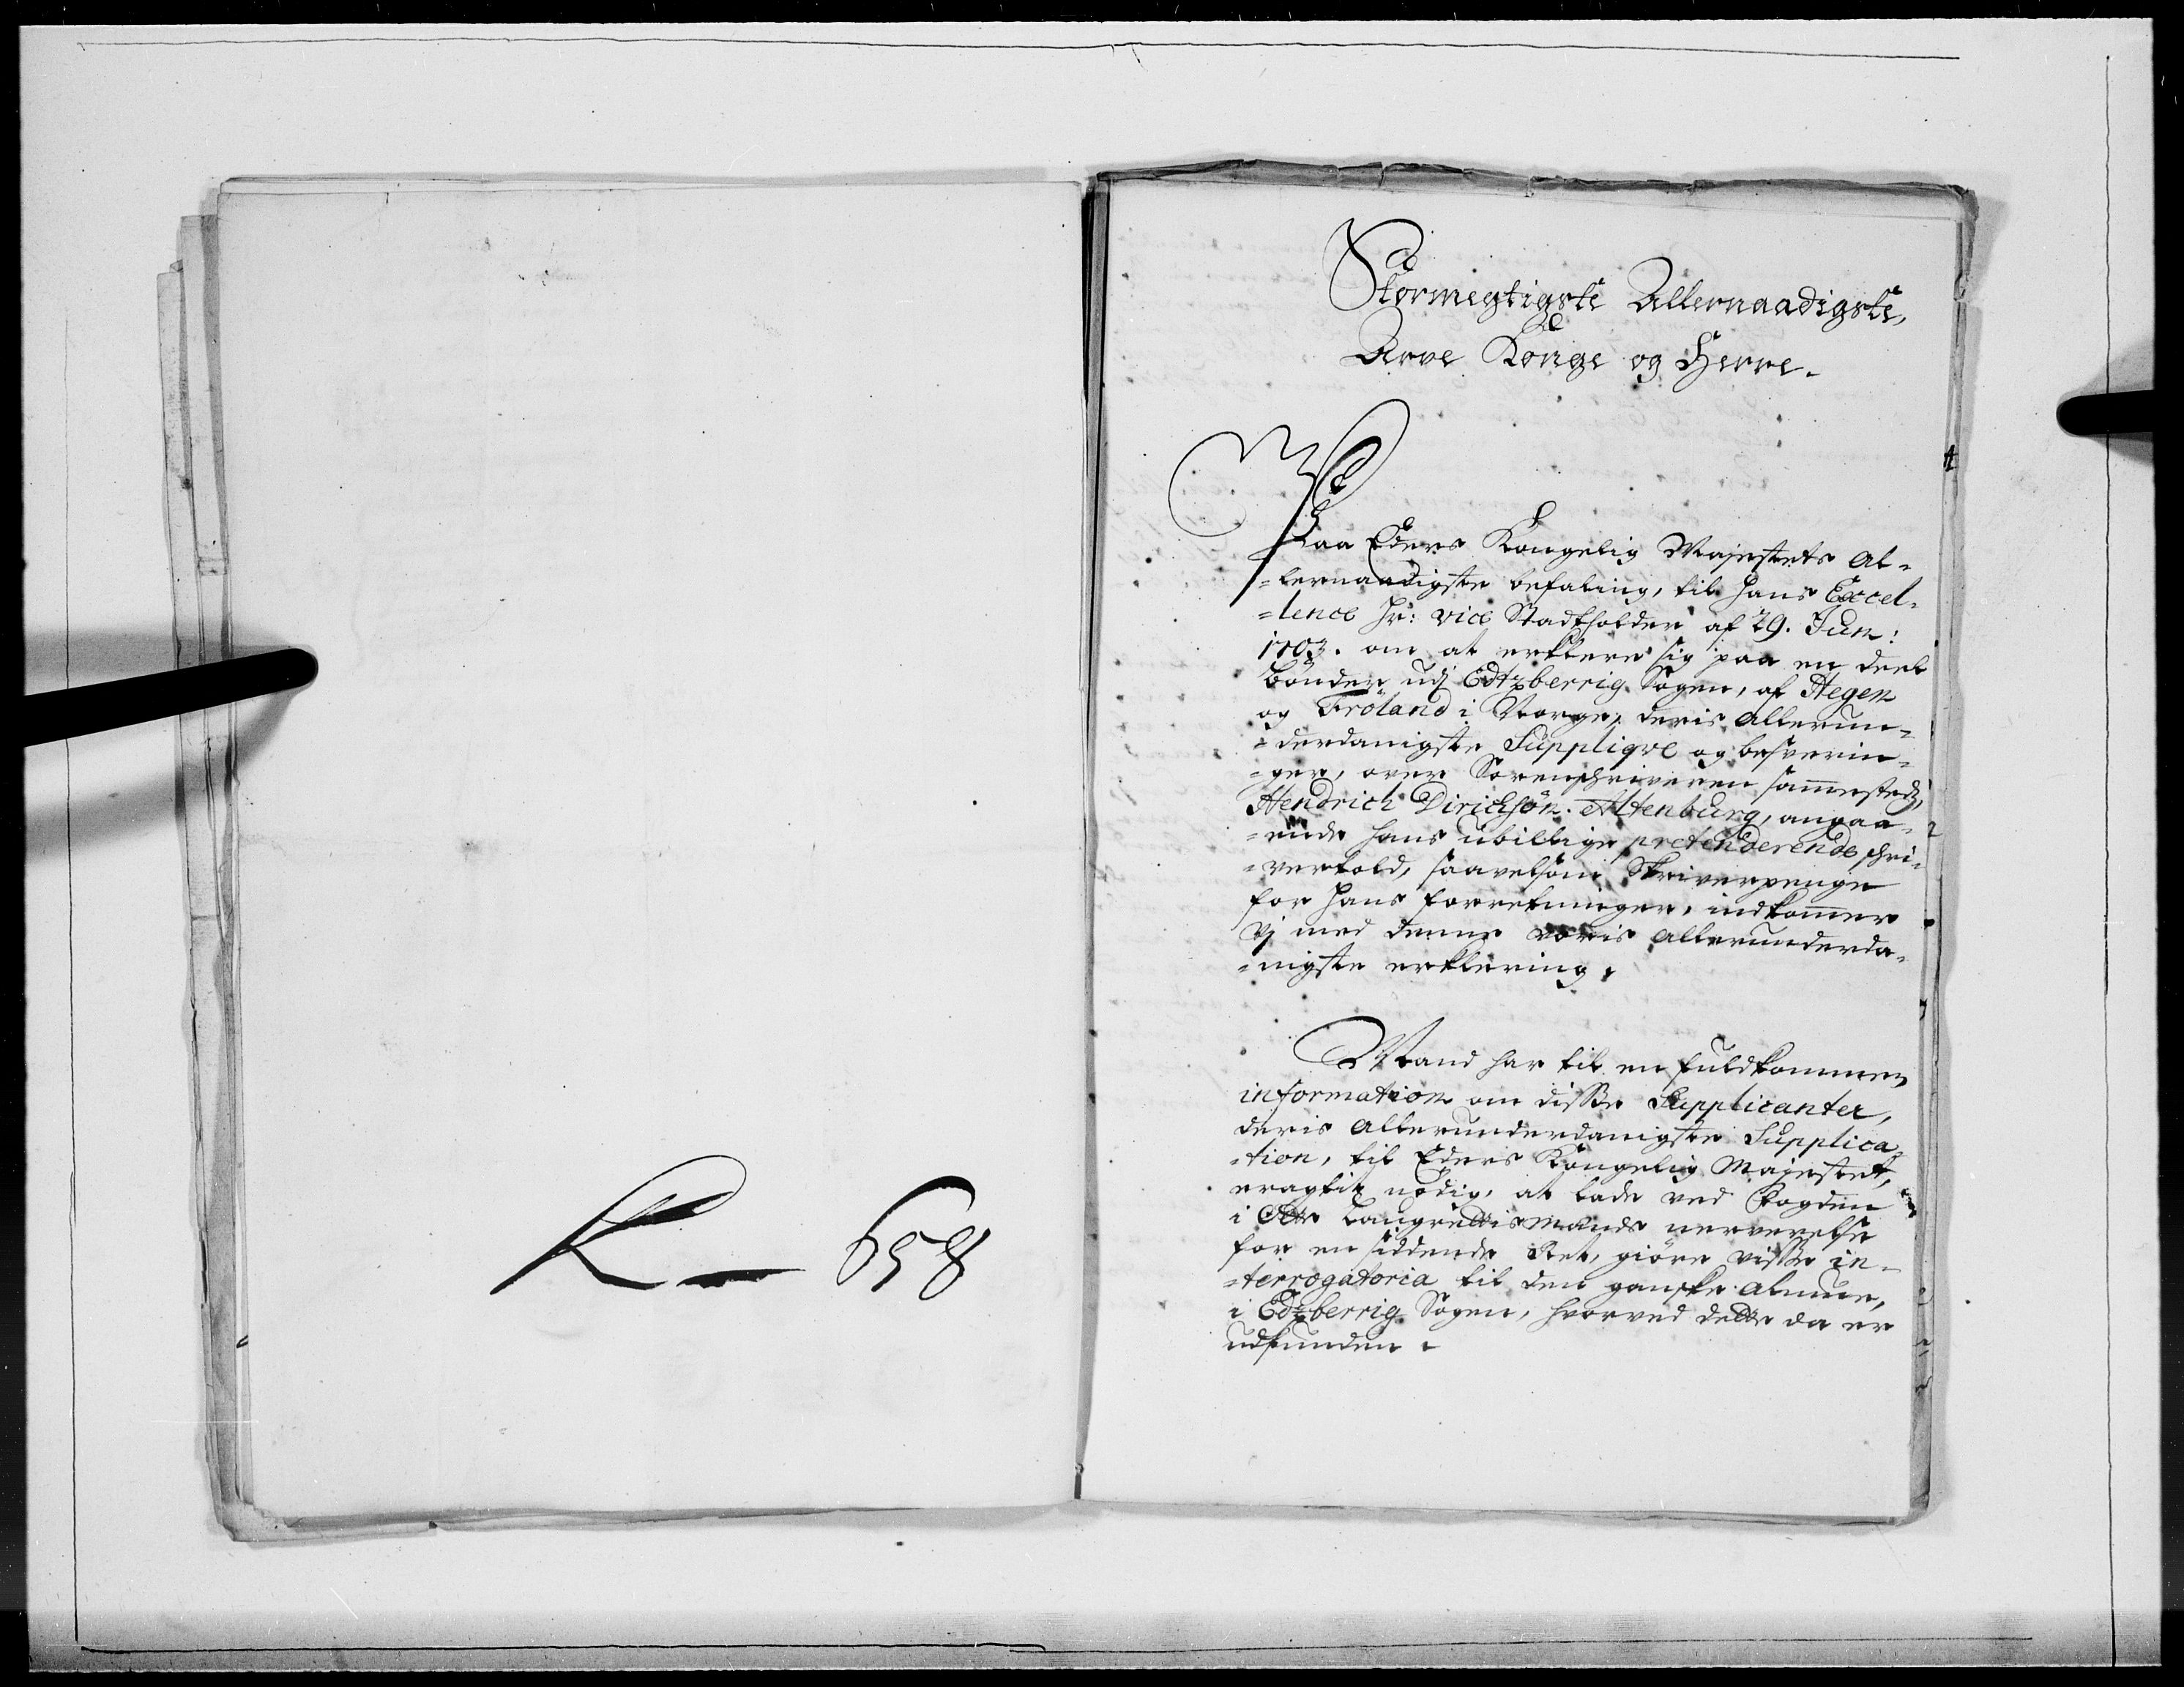 K — 658
Stormegtigste Allernaadigste,
Arve Konge og Herre.
Paa Eders Kongelig Majestets al-
-lernaadigste befaling, til hans Excel-
-lence Hr: vice Stadtholder af 29. Jun:
1703. om at erklere sig paa en deel
bönder udj Edtzberrig Sogen, af Hegen
og Fröland i Norge, deris allerun-
-derdanigste Suppliqve og besverin-
-ger, over Sorenschriveren sammestedz,
Hendrich Dirichsön Altenburg, angaa-
-ende hans ubillige pretenderende schri-
-vertold, saavelsom Skriverpenge
for hans forretninger, indkommer
vj med denne voris allerunderda-
-nigste erklering.
Mand har til en fuldkommen
information om disse Supplicanter,
deris allerunderdanigste Supplica-
-tion, til Eders Kongelig Majestet,
eragtit nödig, at lade ved fogden
i Otte Laugrettismænds nerverelse
for en siddende Ret, giöre visse in-
-terrogatoria til den gandske almue,
i Edzberrig Sogen, hvorved dette da er
udfunden.